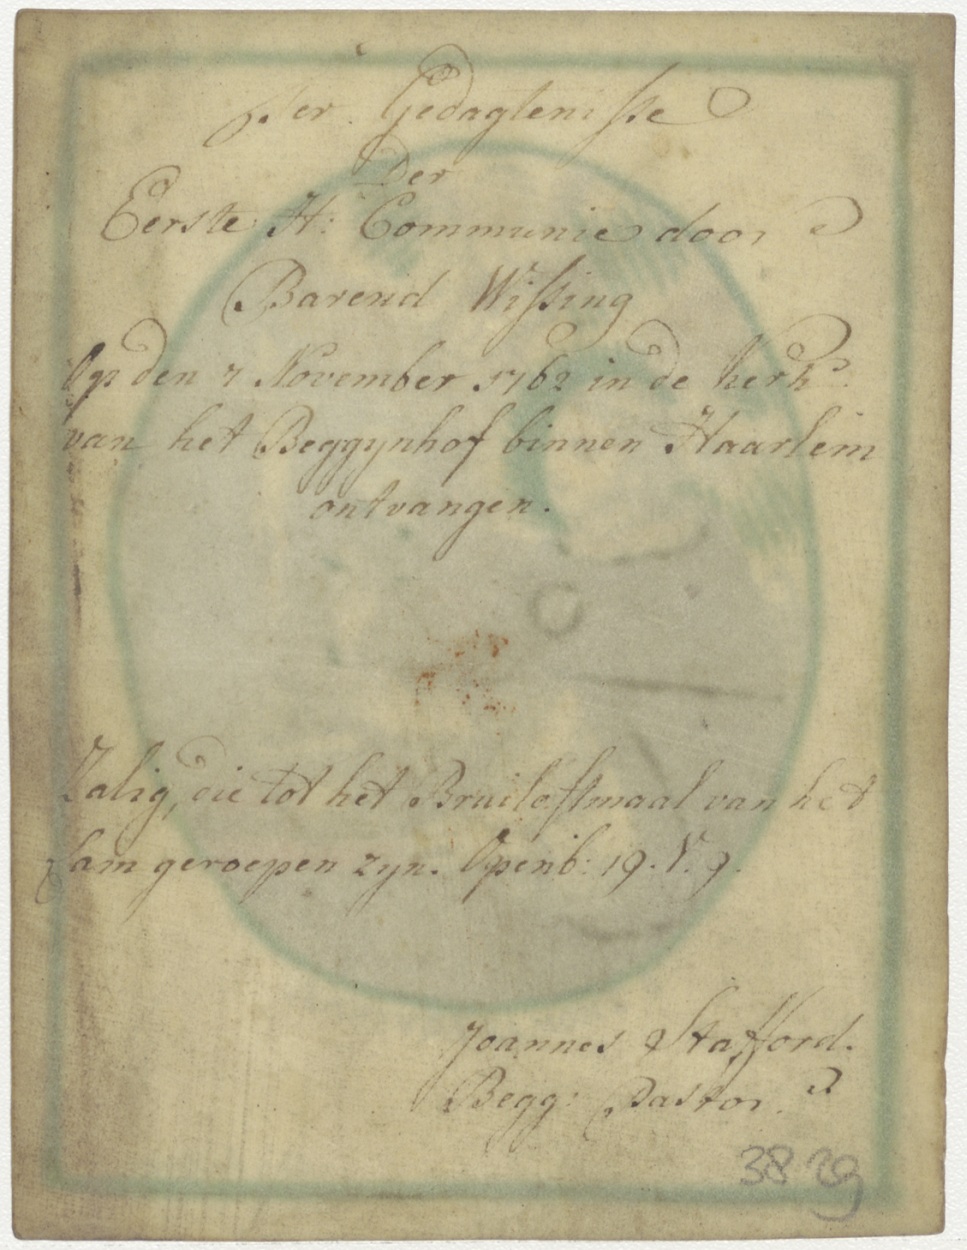 Ter Gedagtenisse
Der
Eerste H: Communie door
Barend Wissing
Op den 7 November 1762 in de kerk
van het Beggynhof binnen Haarlem
ontvangen.
Zalig, die tot het Bruiloftmaal van het
Lam geroepen zyn. Openb: 19. V. 9.
Joannes Stafford.
Begg: Pastor.
38 29